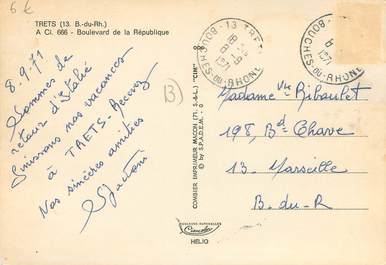 6 €
TRETS (13. B.-du-Rh.)
A Ci. 666 - Boulevard de la République
8.9.71
Sommes de
retour d'Italie
Finissons nos vacances
à TRETS. Recevez
Nos sincères amitiés
B
COMBIER IMPRIMEUR MACON (71. S.-&-L.) "CIM"
© by S.P.A.D.E.M. - O
13 TRETS
BOUCHES-DU-RHONE
BOUCHES-DU-RHONE
Madame Vve Ribaulet
198, Bd Chave
13. Marseille
B. du. R
HELIO